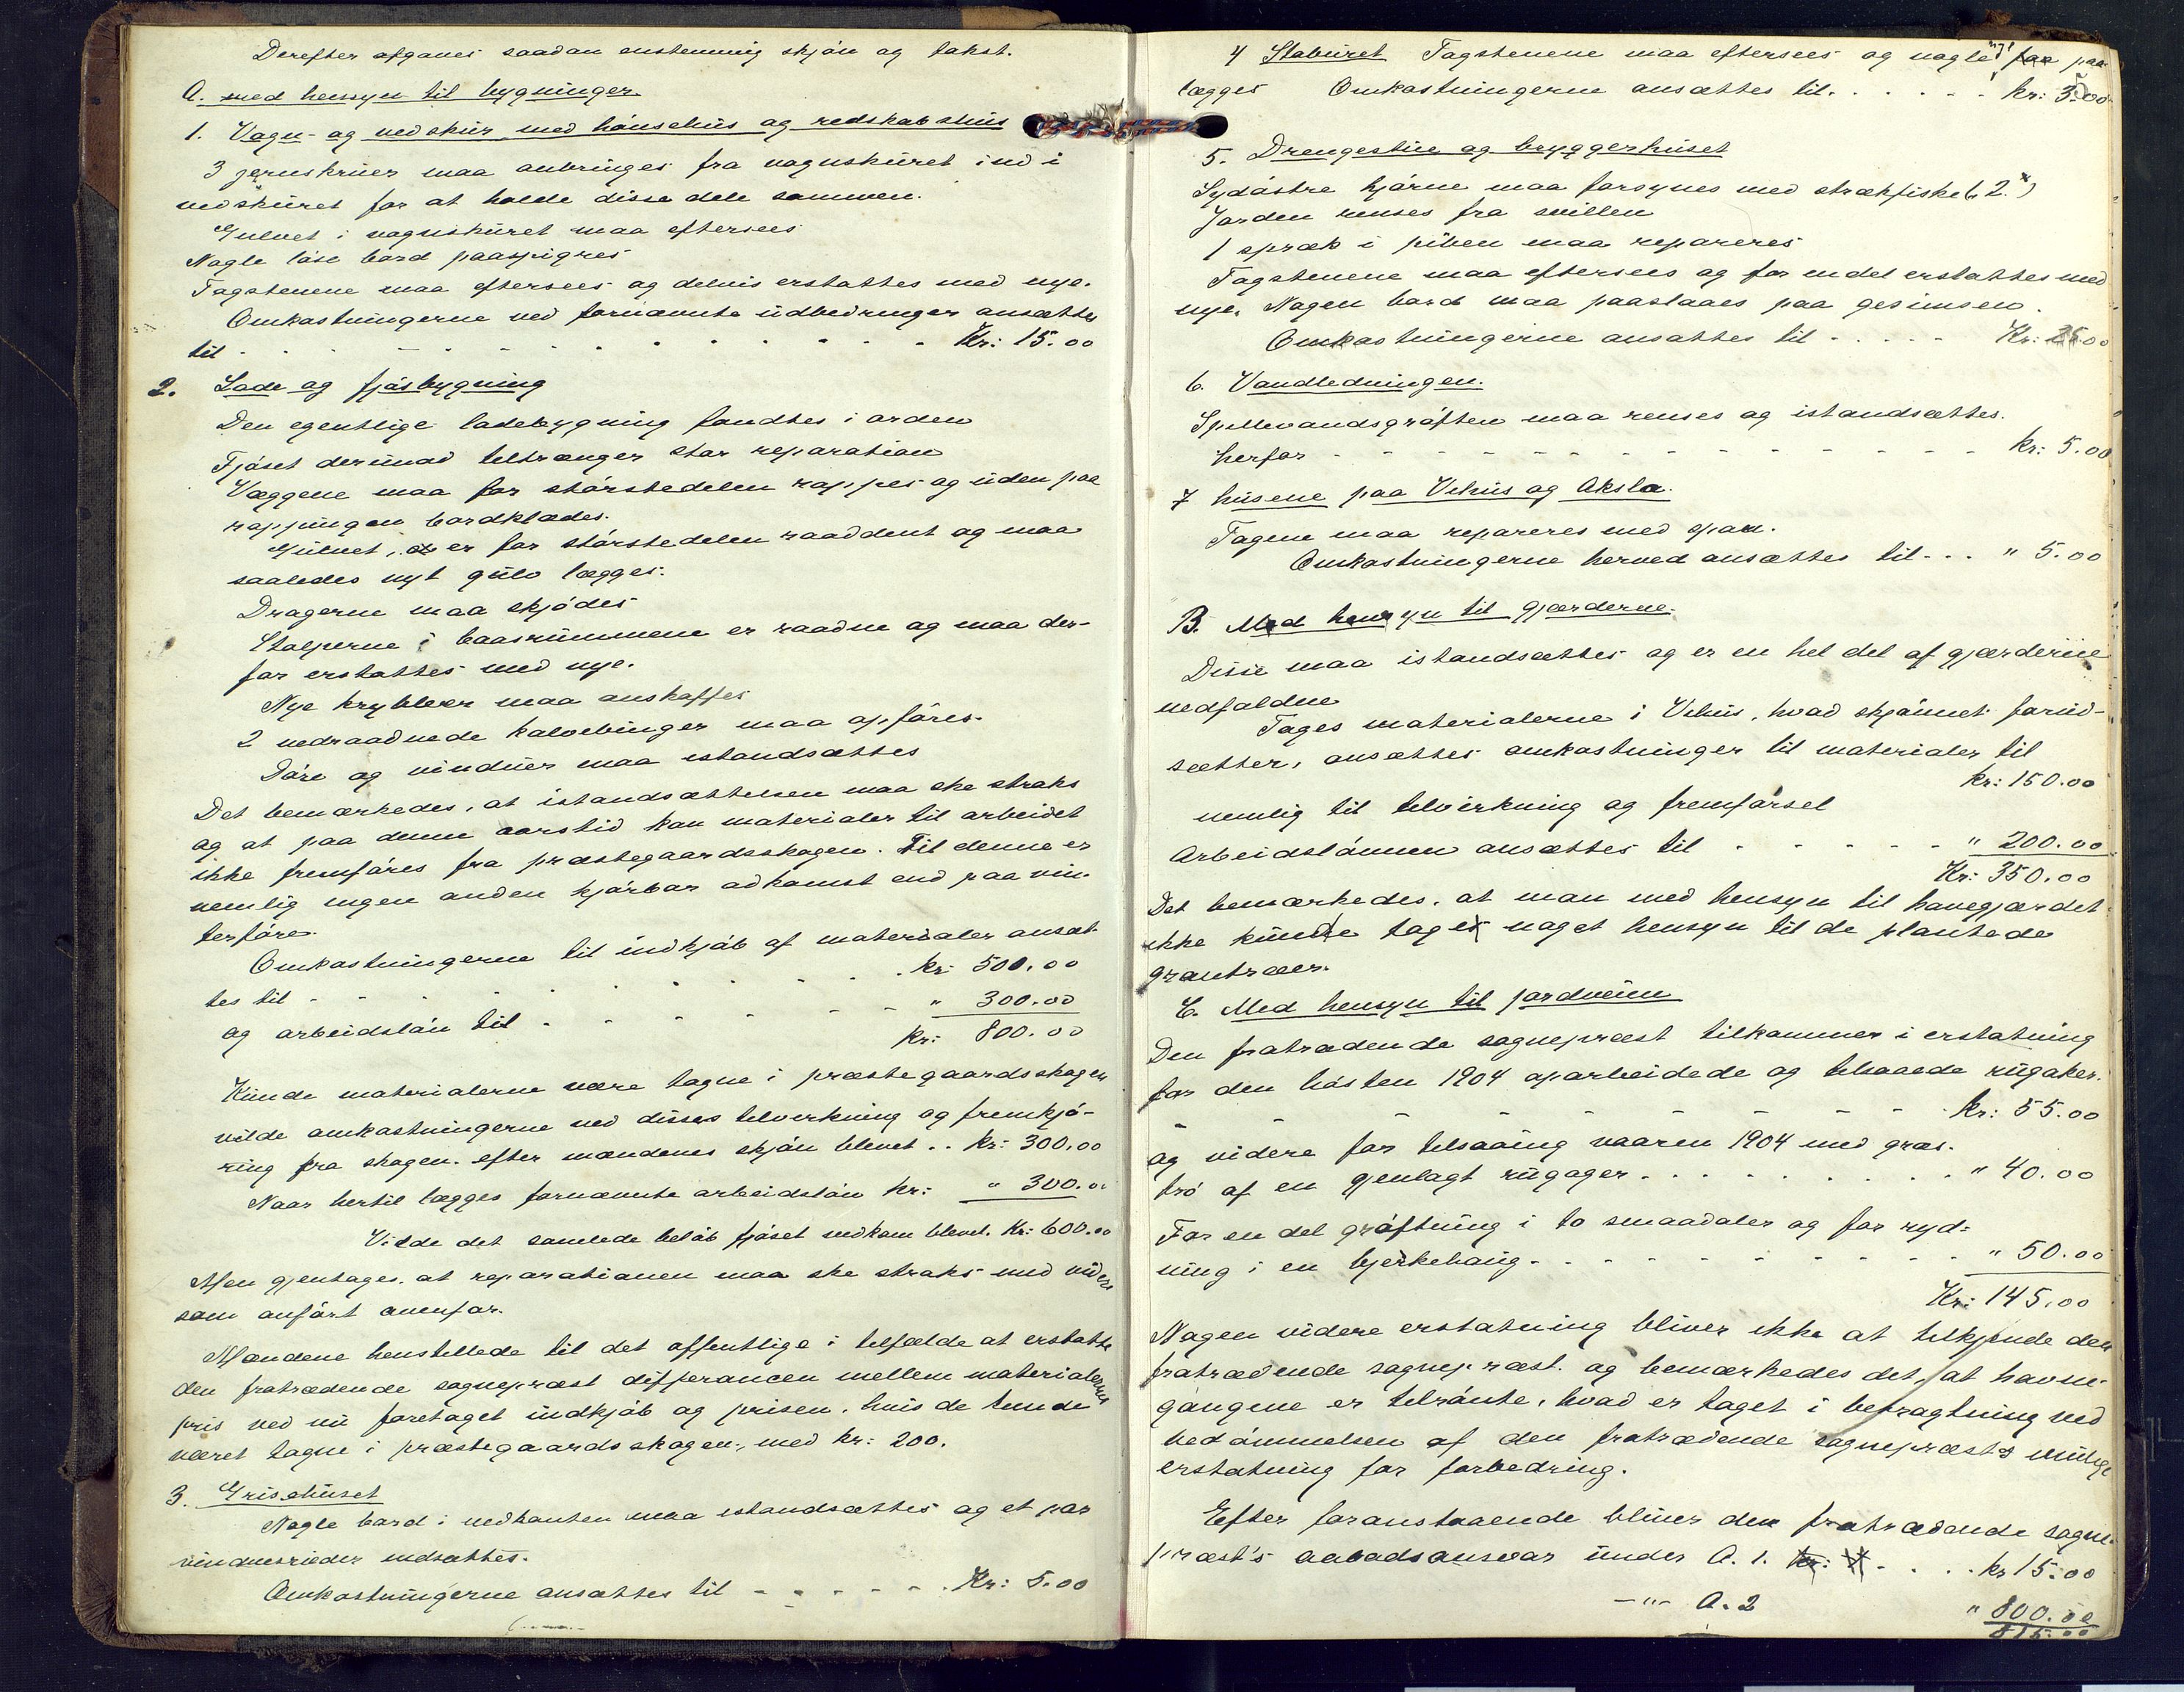 Derefter afgaves saadan enstemmig skjøn og takst.
A. med hensyn til bygninger
1. Vagn- og vedskur med hønsehus og redskabshus
3 jernskruer maa anbringes fra vagnskuret ind i
vedskuret for at holde disse dele sammen.
Gulvet i vagnskuret maa eftersees
Nogle løse bord paaspigres
Tagstenene maa eftersees og delvis erstattes med nye.
Omkostningerne ved fornævnte udbedringer ansættes
til - - - - - - - - - - - Kr: 15.00
2. Lade og fjøsbygning
Den egentlige ladebygning fandtes i orden
Fjøset derimod tiltrænger stor reparation
Væggene maa for størstedelen rappes og uden paa
rappingen bordklædes.
Gulvet, er for størstedelen raaddent og maa
saaledes nyt gulv lægges.
Dragerne maa skjødes
Stolperne i baasrummene er raadne og maa der-
for erstattes med nye.
Nye krybber maa anskaffes
2 nedraadnede kalvebinger maa opføres.
Døre og vinduer maa istandsættes
Det bemærkedes, at istandsættelsen maa ske straks
og at paa denne aarstid kan materialer til arbeidet
ikke fremføres fra præstegaardsskogen. Til denne er
nemlig ingen anden kjørbar adkomst end paa vin-
terføre.
Omkostningerne til indkjøb af materialer ansæt-
tes til - - - - - - - - kr: 500.00
og arbeidsløn til - - - - - - " 300.00
kr: 800.00
Kunde materialerne være tagne i præstegaardsskogen
vilde omkostningerne ved disses tilvirkning og fremkjø-
ring fra skogen efter mændenes skjøn blevet . . kr: 300.00
Naar hertil lægges fornævnte arbeidsløn kr: " 300.00
Vilde det samlede beløb fjøset vedkom blevet. Kr: 600.00
Men gjentages, at reparationen maa ske straks med videre
som anført ovenfor.
Mændene henstillede til det offentlige i tilfælde at erstatte
den fratrædende sogneprest differancen mellem materialernes
pris ved nu foretaget indkjøb og prisen, hvis de kunde
været tagne i præstegaardsskogen, med kr: 200.
3. Grisehuset
Nogle bord i nedkanten maa istandsættes og et par
vinduesruder indsættes.
Omkostningerne ansættes til - - - - - . Kr: 5.00
4 Staburet Tagstenene maa eftersees og nogle paa
lægges Omkostningerne ansættes til. . . . . . kr: 3.00
5. Drengestue og bryggerhuset
Sydøstre hjørne maa forsynes med strækfiske (2.)
Jorden renses fra svillen
1 spræk i piben maa repareres
Tagstenene maa eftersees og for en del erstattes med
nye. Nogen bord maa paaslaaes paa gesimsen.
Omkostningerne ansættes til - . . . . Kr: 25.00
6. Vandledningen.
Spillevandsgrøften maa renses og istandsættes.
herfor - - - - - - - - - - - - kr: 5.00
7 husene paa Vehus og Aksla.
Tagene maa repareres med spon.
Omkostningerne herved ansættes til - . . " 5.00
B. Med hensyn til gjærderne.
Disse maa istandsættes og er en hel del af gjærderne
nedfaldne
Tages materialerne i Vehus, hvad skjønnet forud-
sætter, ansættes omkostninger til materialer til
kr: 150.00
nemlig til tilvirkning og fremførsel
Arbeidslønnen ansættes til - - - - - " 200.00
Kr: 350.00
Det bemærkedes, at man med hensyn til havegjærdet
ikke kunde tage noget hensyn til de plantede
grantræer.
C. Med hensyn til jordveien
Den fratrædende sognepræst tilkommer i erstatning
for den høsten 1904 oparbeidede og tilsaaede rugaker.
- - - - - - - - kr: 55.00
og videre for tilsaaing vaaren 1904 med græs-
frø af en gjenlagt rugager. . . . . . . . . " 40.00
For en del grøftning i to smaadaler og for ryd-
ning i en bjerkehaug - - - - - - - - - " 50.00
Kr: 145.00
Nogen videre erstatning bliver ikke at tilkjende den
fratrædende sognepræst, og bemærkedes det, at havne-
gangene er tilrønte, hvad er taget i betragtning ved
bedømmelsen af den fratrædende sognepræsts mulige
erstatning for forbedring.
Efter foranstaaende bliver den fratrædende sogne-
præst's aabodsansvar under A. 1. . . . kr 15.00
-"- A. 2 " 800.00
815.00